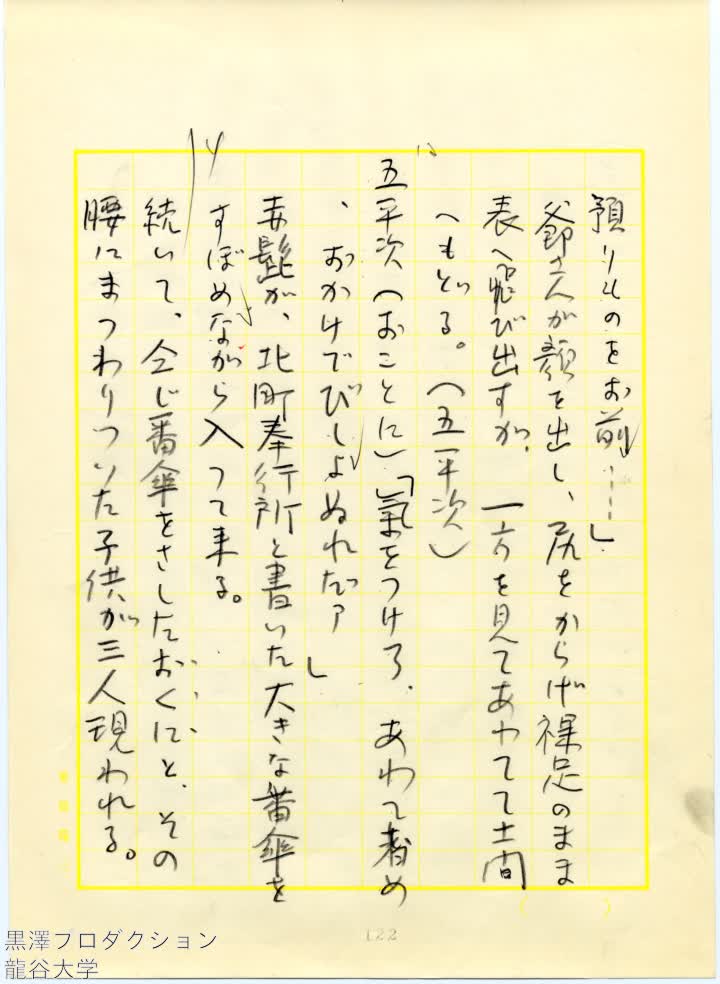 預りものをお前……」
爺さんが顔を出し、尻をからげ裸足のまま
表へ飛び出すが、一方を見てあわてて土間
へもどる。(五平次)
五平次(おことに)「氣をつけろ、あわて者め
、おかけでびしよぬれだァ」
赤髭が、北町奉行所と書いた大きな番傘を
すぼめながら入つて来る。
続いて、仝じ番傘をさしたおくにと、その
腰にまつわりついた子供が三人現われる。
122
黒澤プロダクション
龍谷大学